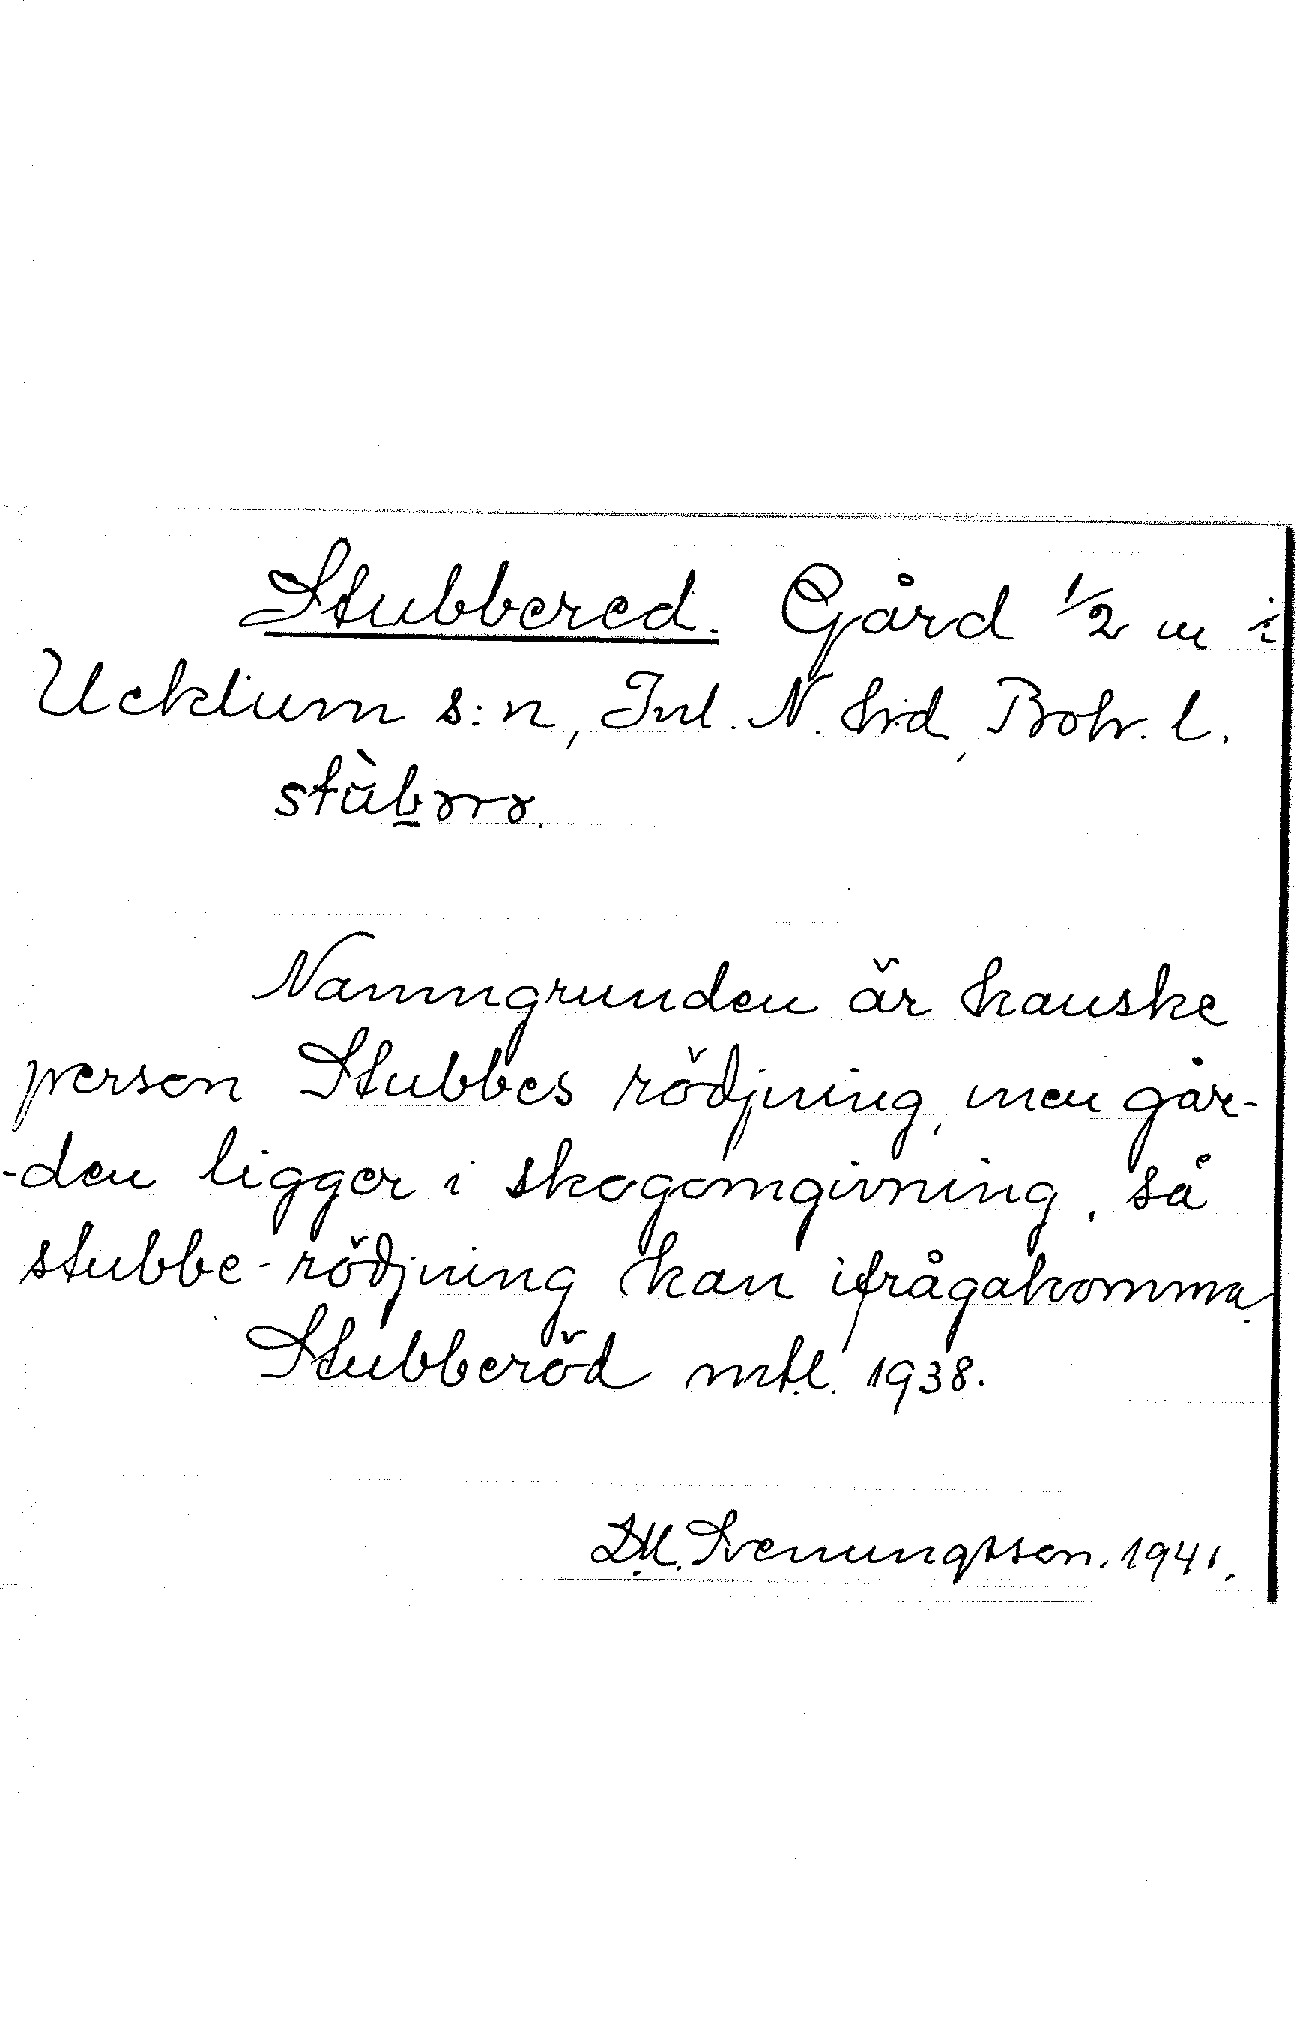 Stubbered. Gård 1/2 m i
Ucklum s:n, Inl. N. hrd, Boh. l.
stùbərə.
Namngrunden är kanske
person Stubbes rödjning, men går-
-den ligger i skogomgivning, så
stubbe-rödjning kan ifrågakomma.
Stubberöd mtl. 1938.
D.M. Svenungsson. 1941.